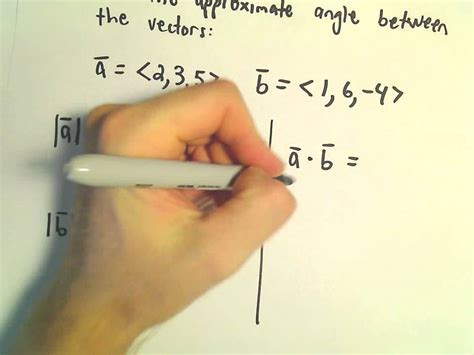 approximate angle between
the vectors:
a̅ = <2,3,5> b̅ = <1,6,-4>
|a̅|
a̅ · b̅ =
|b̅